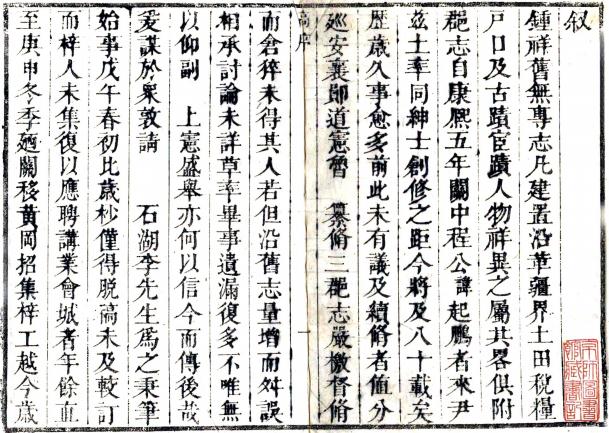 叙
鍾祥舊無專志凡建置沿革疆界土田稅糧
戶口及古蹟宦蹟人物祥異之屬其畧俱附
郡志自康熙五年關中程公諱起鵬者來尹
茲土率同紳士創修之距今將及八十載矣
歷歲久事愈多前此未有議及續脩者值分
廵安襄鄖道憲魯 纂脩三郡志嚴檄督脩
高序 一
而倉猝未得其人若但沿舊志量增而舛誤
相承討論未詳草率畢事遺漏復多不唯無
以仰副 上憲盛舉亦何以信今而傳後哉
爰謀於衆敦請 石湖李先生爲之秉筆
始事戊午春初比歲杪僅得脫稿未及較訂
而梓人未集復以應聘講業會城者年餘直
至庚申冬季廼關移黃岡招集梓工越今歲